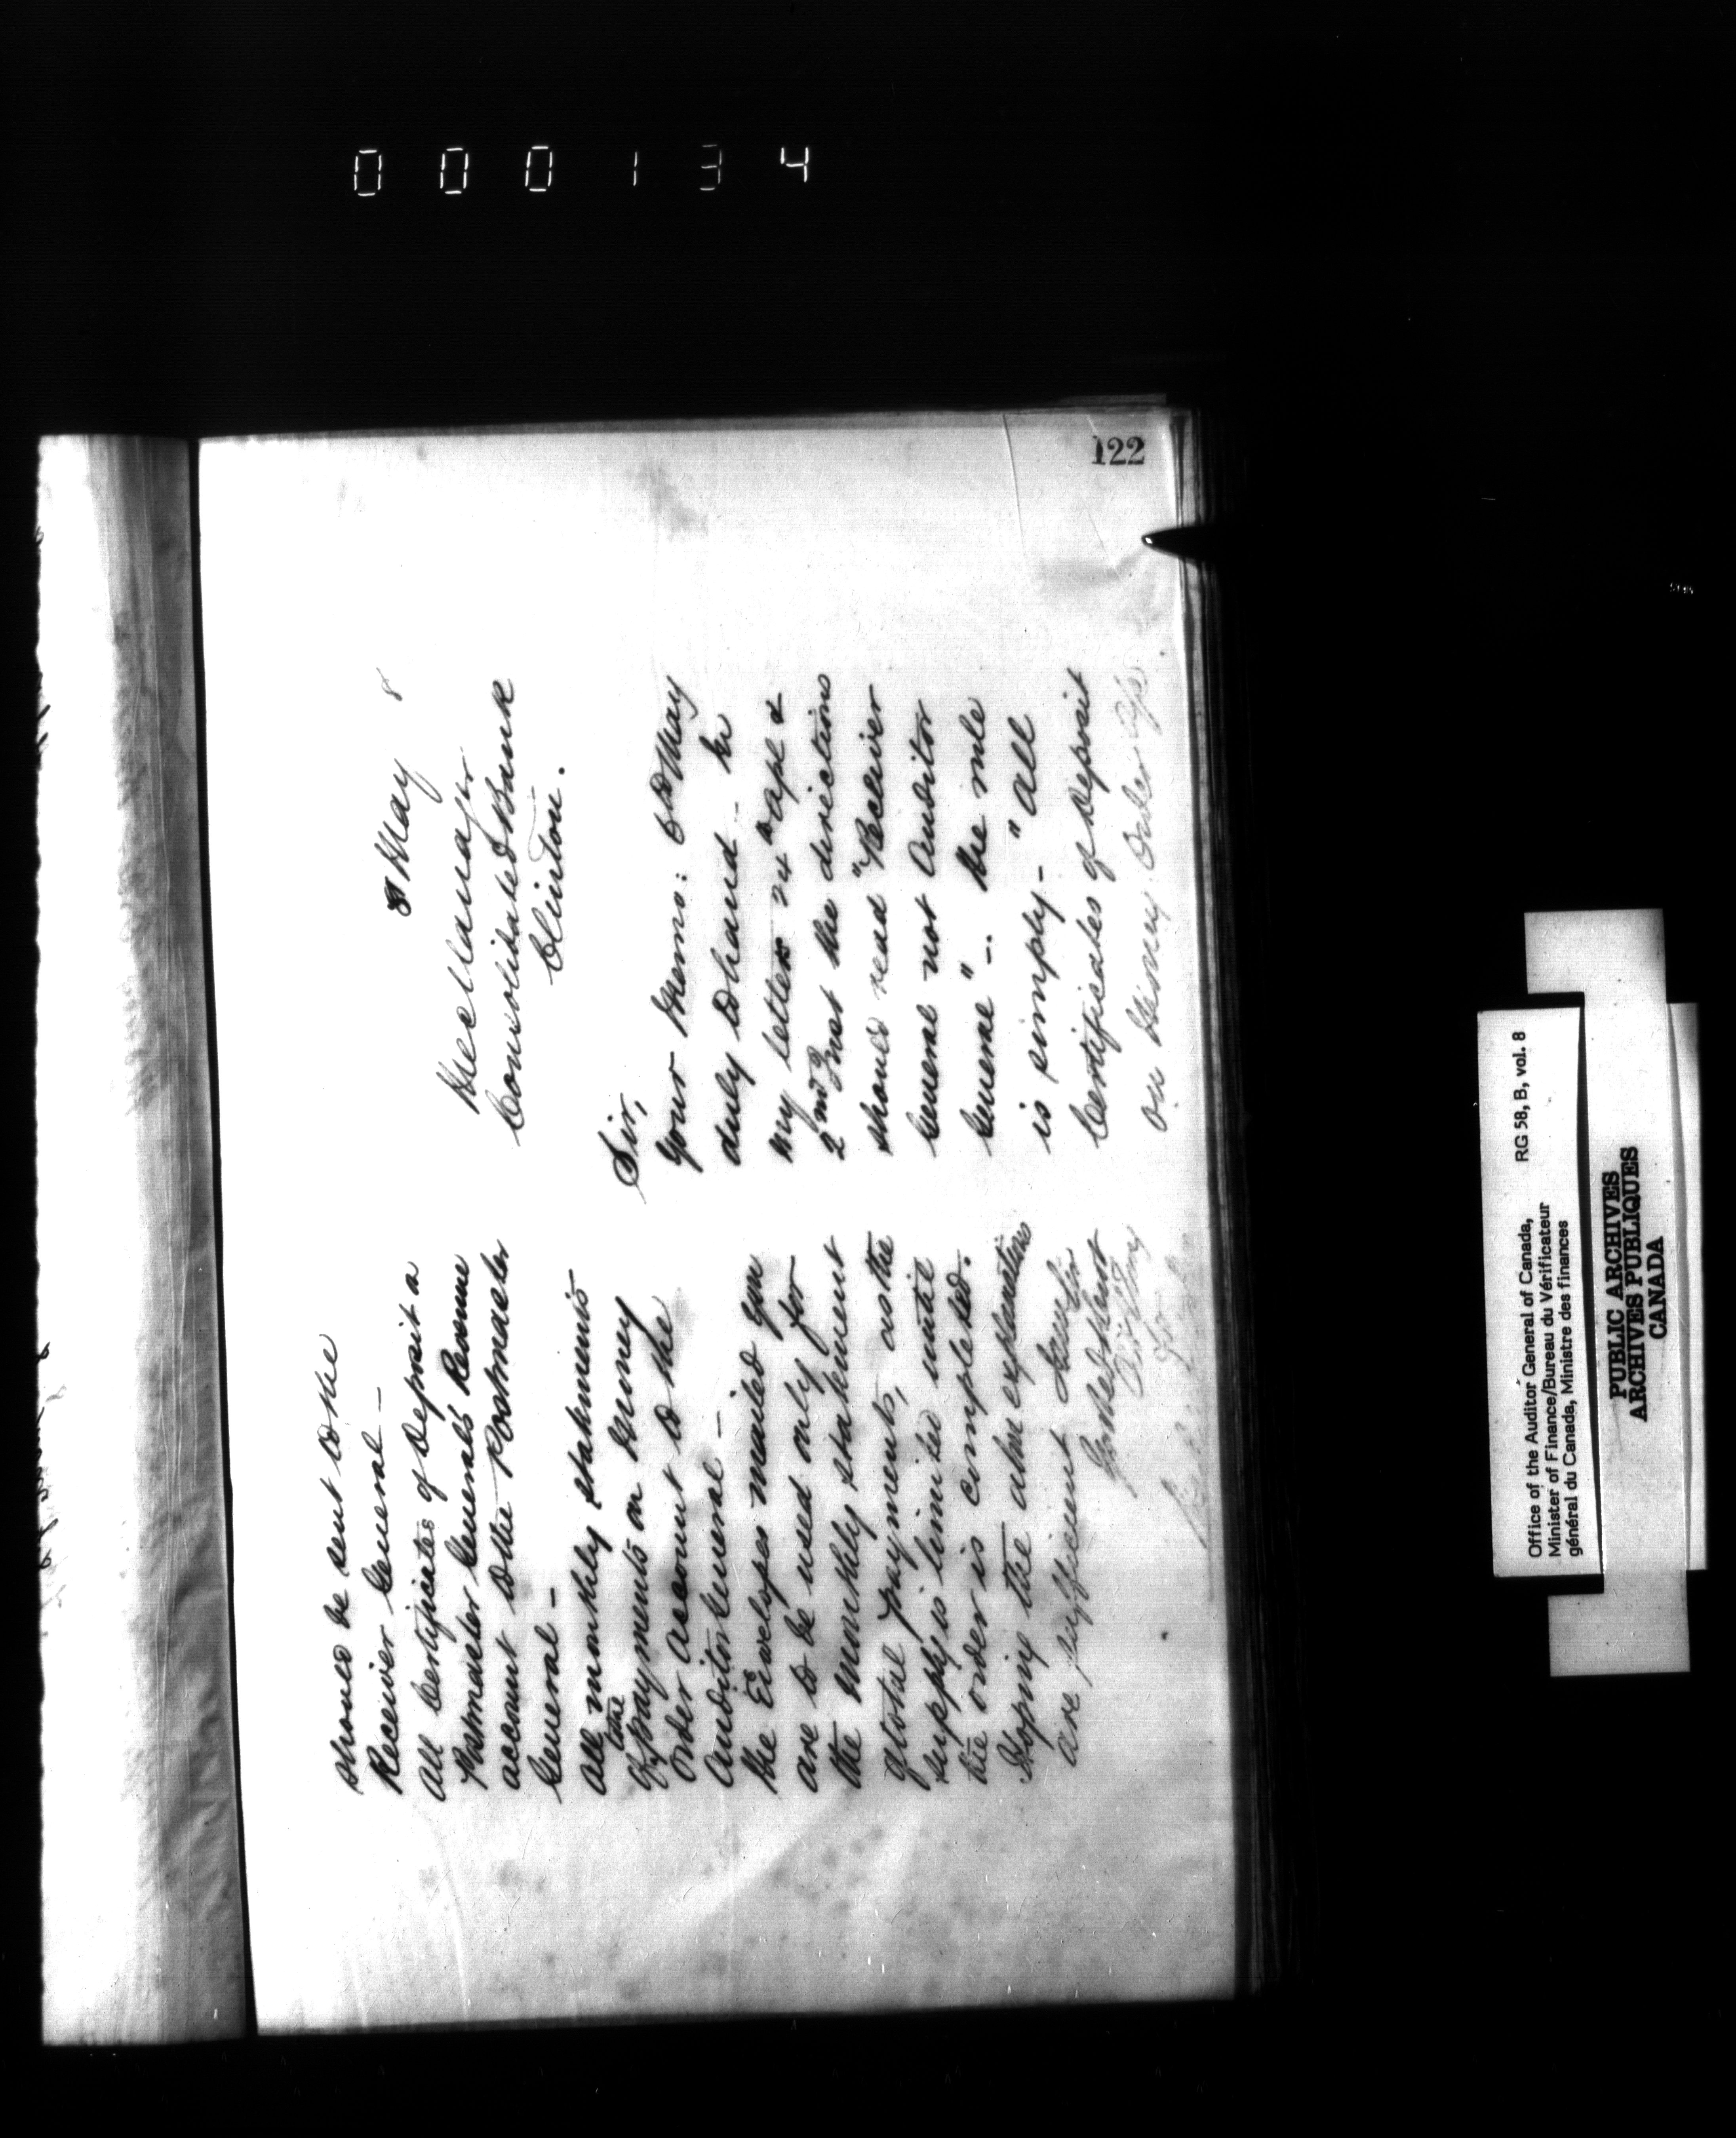 000134
122
8 May 8
The Manager
Consolidated Bank
Clinton.
Sir,
Your Memo: 6th May
duly to hand — In
my letters 24 Apl &
2nd Inst the directions
should read "Receiver
General not Auditor
General" —. The rule
is simply — "All
Certificates of Deposit
on Money Order a/c
should be sent to the
Receiver General —
All Certificates of Deposit a
Postmaster General's Revenue
account to the Postmaster
General —
All monthly statements
of the payments on Money
Order Account to the
Auditor General —
The Envelopes mailed you
are to be used only for
the monthly statement
of total payments, as the
supply is limited until
the order is completed.
Hoping the abv explanations
are sufficient I am Sir
Your obed Servt
Office of the Auditor General of Canada, RG 58, B, vol. 8
Minister of Finance/Bureau du Vérificateur
général du Canada, Ministre des finances
PUBLIC ARCHIVES
ARCHIVES PUBLIQUES
CANADA